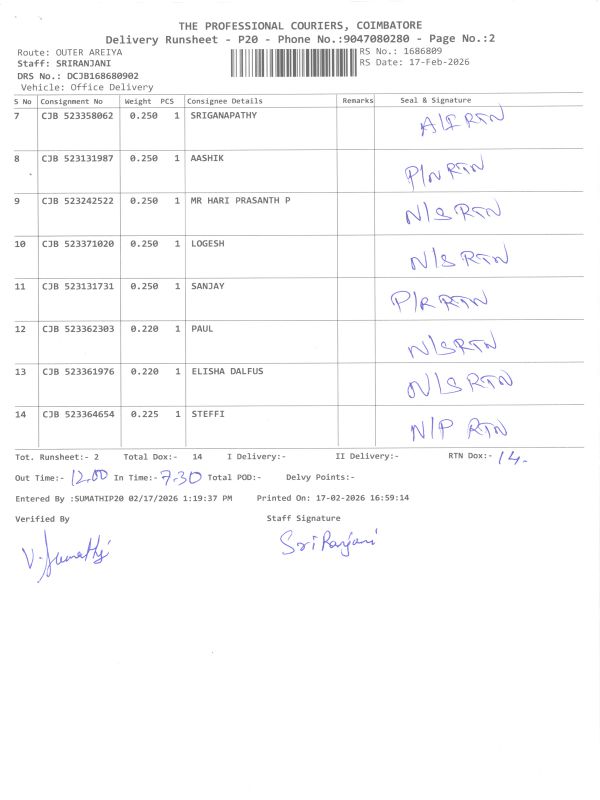 THE PROFESSIONAL COURIERS, COIMBATORE
Delivery Runsheet - P20 - Phone No.:9047080280 - Page No.:2
Route: OUTER AREIYA RS No.: 1686809
Staff: SRIRANJANI RS Date: 17-Feb-2026
DRS No.: DCJB168680902
Vehicle: Office Delivery
S No Consignment No Weight PCS Consignee Details Remarks Seal & Signature
7 CJB 523358062 0.250 1 SRIGANAPATHY A/I RTN
8 CJB 523131987 0.250 1 AASHIK P/N RTN
9 CJB 523242522 0.250 1 MR HARI PRASANTH P N/S RTN
10 CJB 523371020 0.250 1 LOGESH N/S RTN
11 CJB 523131731 0.250 1 SANJAY P/R RTN
12 CJB 523362303 0.220 1 PAUL N/S RTN
13 CJB 523361976 0.220 1 ELISHA DALFUS N/S RTN
14 CJB 523364654 0.225 1 STEFFI N/P RTN
Tot. Runsheet:- 2 Total Dox:- 14 I Delivery:- II Delivery:- RTN Dox:- 14.
Out Time:- 12.00 In Time:- 7.30 Total POD:- Delvy Points:-
Entered By :SUMATHIP20 02/17/2026 1:19:37 PM Printed On: 17-02-2026 16:59:14
Verified By Staff Signature
V. Sumathi Sri Ranjani